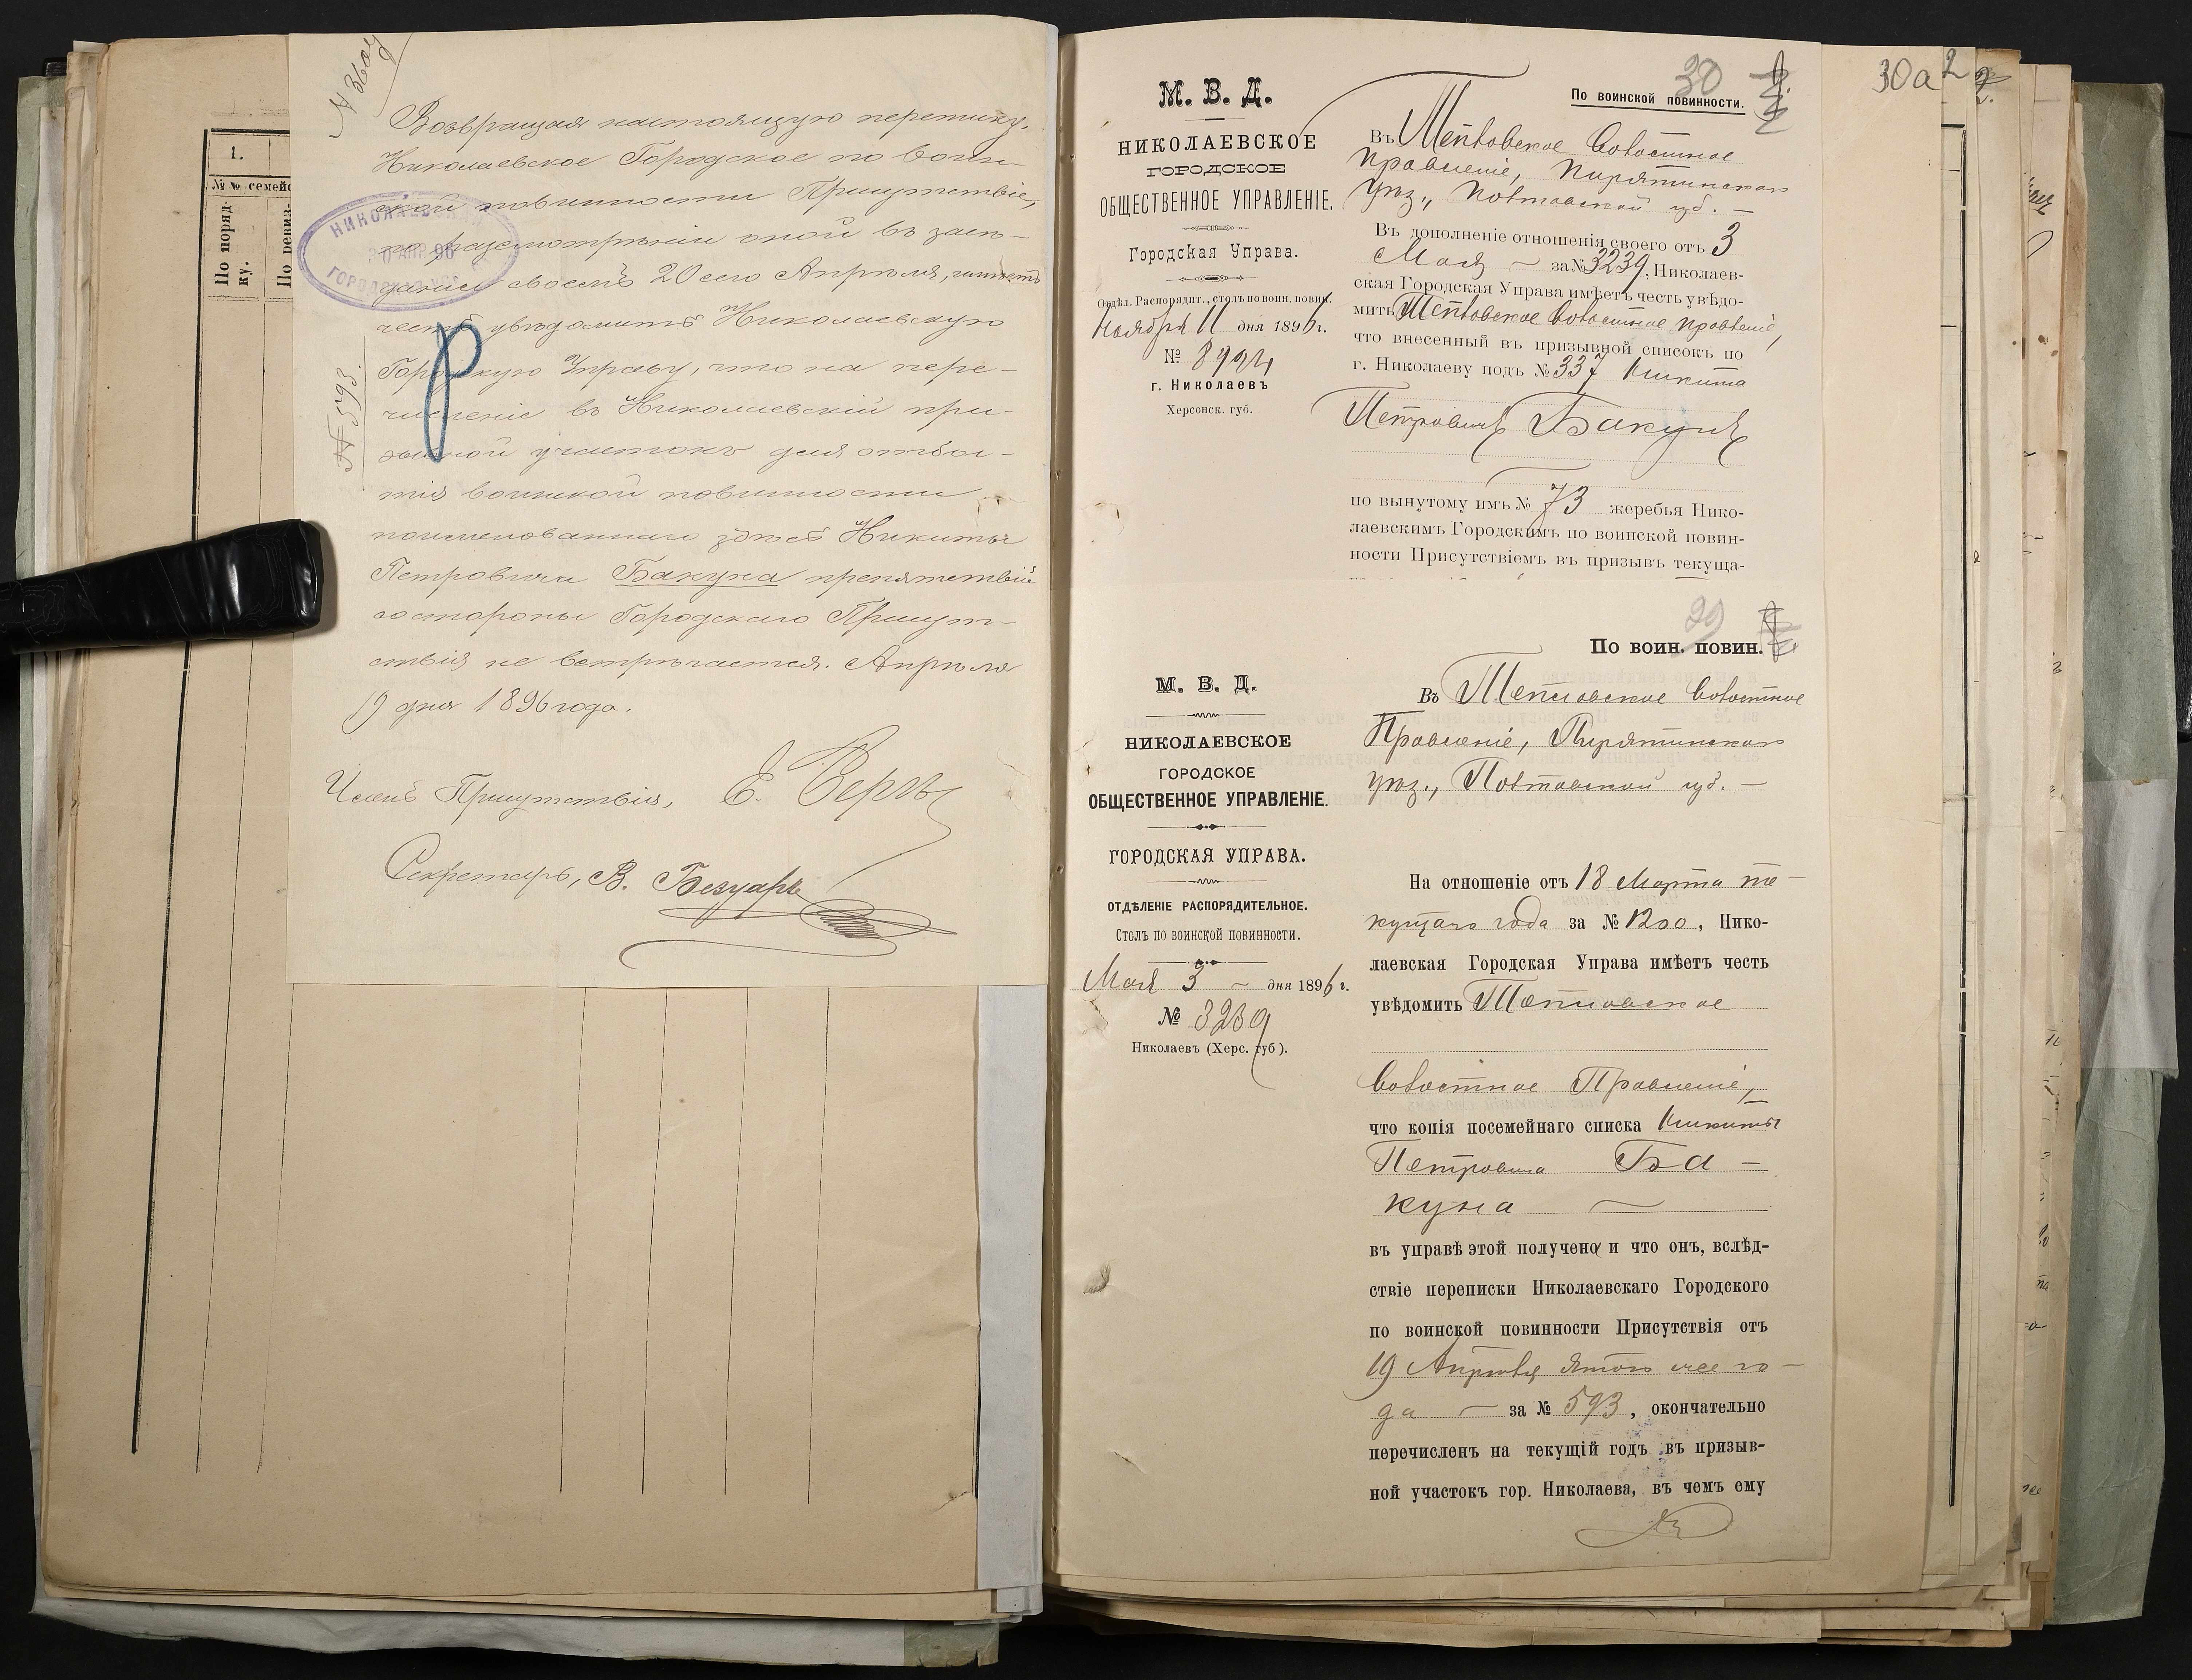 № 3604
Возвращая настоящую переписку,
Николаевское Городское по воин-
ской повинности Присутствіе,
по разсмотрѣніи оной въ засѣ-
даніи своемъ 20 сего Апрѣля, имѣетъ
честь увѣдомить Николаевскую
Городскую Управу, что на пере-
численіе въ Николаевскій при-
зывной участокъ для отбы-
тія воинской повинности
поименованнаго здѣсь Никиты
Петровича Бакуна препятствій
со стороны Городского Присут-
ствія не встрѣчается. Апрѣля
19 дня 1896 года.
Членъ Присутствія,
Секретарь, В.
№ 593.
НИКОЛАЕВСКАЯ
АПР 96
1.
№№ семейс
По поряд-
ку.
По ревиз-
30
По воинской повинности.
М. В. Д.
НИКОЛАЕВСКОЕ
ГОРОДСКОЕ
ОБЩЕСТВЕННОЕ УПРАВЛЕНІЕ.
Городская Управа.
Отдѣл. Распорядит., столъ по воин. повин.
Ноября 11 дня 1896 г.
№ 8994
г. Николаевъ
Херсонск. губ.
Въ Теплавское Волостное
Правленіе, Пирятинскаго
уѣз., Полтавской губ. —
Въ дополненіе отношенія своего отъ 3
Мая — за № 3239, Николаев-
ская Городская Управа имѣетъ честь увѣдо-
мить Теплавское Волостное Правленіе,
что внесенный въ призывной списокъ по
г. Николаеву подъ № 337 Никита
Петровичъ Бакунъ
по вынутому имъ № 73 жеребья Нико-
лаевскимъ Городскимъ по воинской повин-
ности Присутствіемъ въ призывъ текуща-
29
По воин. повин.
М. В. Д.
НИКОЛАЕВСКОЕ
ГОРОДСКОЕ
ОБЩЕСТВЕННОЕ УПРАВЛЕНІЕ.
ГОРОДСКАЯ УПРАВА.
ОТДѢЛЕНІЕ РАСПОРЯДИТЕЛЬНОЕ.
Столъ по воинской повинности.
Мая 3 — дня 1896 г.
№ 3239
Николаевъ (Херс. губ).
Въ Теплавское Волостное
Правленіе, Пирятинскаго
уѣз., Полтавской губ. —
На отношеніе отъ 18 Марта те-
кущаго года за № 1200, Нико-
лаевская Городская Управа имѣетъ честь
увѣдомить Теплавское
Волостное Правленіе,
что копія посемейнаго списка Никиты
Петровича Ба-
куна —
въ управѣ этой получена и что онъ, вслѣд-
ствіе переписки Николаевскаго Городского
по воинской повинности Присутствія отъ
19 Апрѣля этого же го-
да — за № 593, окончательно
перечисленъ на текущій годъ въ призыв-
ной участокъ гор. Николаева, въ чемъ ему
30а
2